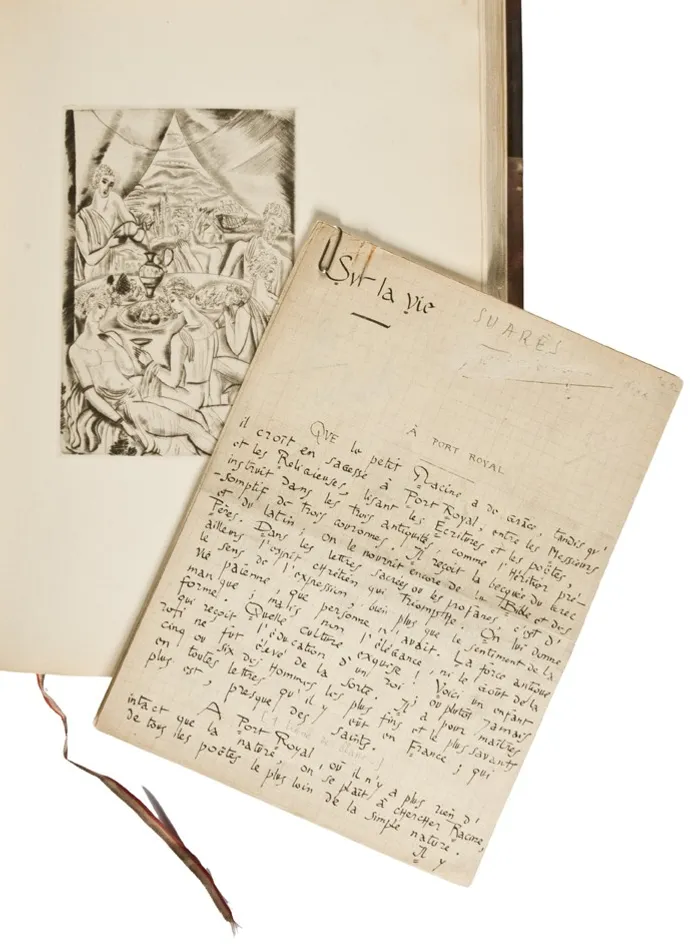 Sur la vie
SUARÈS
À PORT ROYAL
QUE le petit Racine a de grâce, tandis qu'
il croît en sagesse à Port Royal, entre les Messieurs
et les Religieuses, lisant les Écritures et les poëtes,
instruit dans les trois antiquités, comme l'héritier pré-
-somptif de trois couronnes. Il reçoit la becquée du grec
et du latin ; on le nourrit encore de la Bible et des
Pères. Dans les lettres sacrées ou les profanes, c'est d'
ailleurs l'esprit chrétien qui triomphe. On lui donne
le sens de l'expression, bien plus que le sentiment de la
vie païenne, que personne n'avait. La force antique
manque ; mais non l'élégance, ni le goût de la
forme. Quelle culture exquise ! Voici un enfant
qui reçoit l'éducation d'un roi ; ou plutôt jamais
roi ne fut élevé de la sorte. Il a pour maîtres
cinq ou six des hommes les plus fins et les plus savants
en toutes lettres qu'il y eût en France ; qui
plus est, presque des saints.
A Port Royal, où il n'y a plus rien d'
intact que la nature, on se plaît à chercher Racine,
de tous les poëtes le plus loin de la simple nature.
Il y